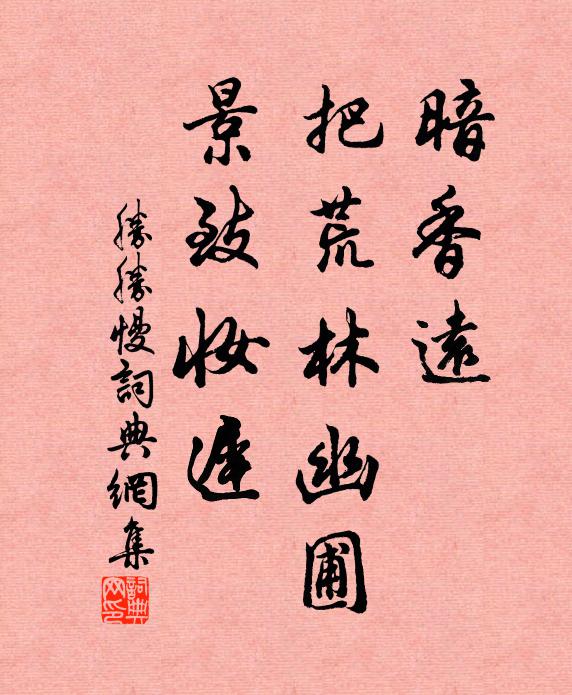 暗香遠
把荒林幽圃
景致妝遲
勝勝慢詞典網集
詞典
网印